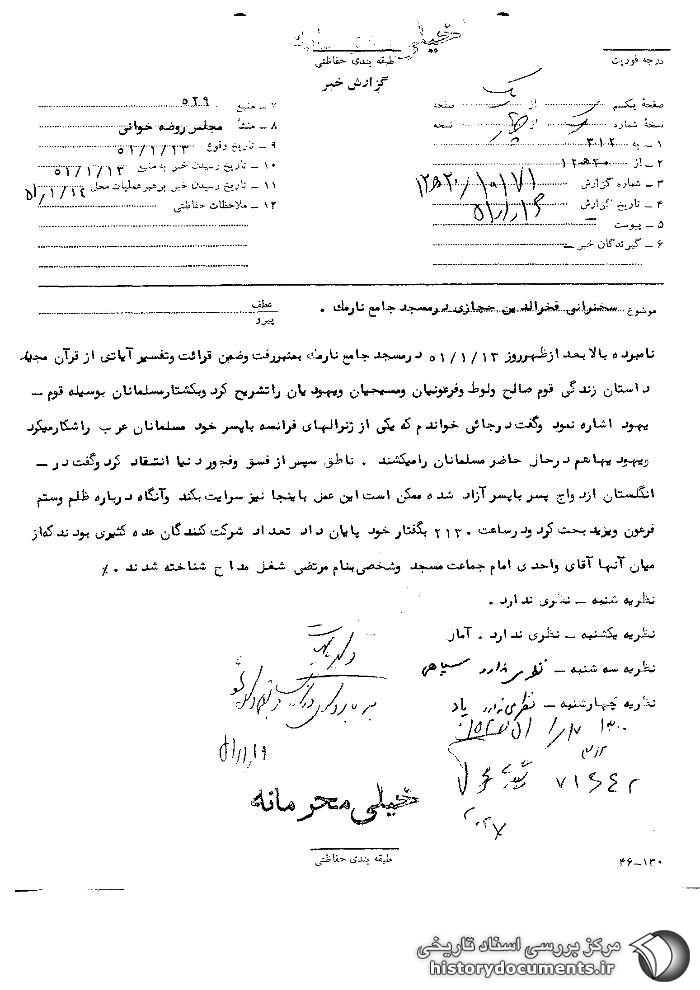 خیلی محرمانه
طبقه بندی حفاظتی
درجه فوریت
گزارش خبر
صفحهٔ یکسم از یک صفحه
نسخهٔ شماره از چهار نسخه
۱ ـ به ۳۱۲
۲ ـ از ۱۲ه۲۰
۳ ـ شماره گزارش ۱۲ه۲۰/۱۰۱۷۱
۴ ـ تاریخ گزارش
۵ ـ پیوست ـ
۶ ـ گیرندگان خبر ـ
۷ ـ منبع ۵۲۹
۸ ـ منشأ مجلس روضه خوانی
۹ ـ تاریخ وقوع ۵۱/۱/۱۳
۱۰ ـ تاریخ رسیدن خبر به منبع ۵۱/۱/۱۳
۱۱ ـ تاریخ رسیدن خبر برهبر عملیات محل ۵۱/۱/۱۴
۱۲ ـ ملاحظات حفاظتی
موضوع سخنرانی فخرالدین حجازی درمسجد جامع نارمک .
عطف
پیرو
نامبرده بالا بعد ازظهرروز ۵۱/۱/۱۳ درمسجد جامع نارمک بمنبررفت وضمن قرائت وتفسیر آیاتی از قرآن مجید
داستان زندگی قوم صالح ولوط وفرعونیان ومسیحیان ویهودیان راتشریح کرد وبکشتارمسلمانان بوسیله قوم ـ
یهود اشاره نمود وگفت درجائی خواندم که یکی از ژنرالهای فرانسه باپسر خود مسلمانان عرب راشکارمیکرد
ویهودیهاهم درحال حاضر مسلمانان رامیکشند . ناطق سپس از فسق وفجور دنیا انتقاد کرد وگفت در ـ
انگلستان ازدواج پسر باپسر آزاد شده ممکن است این عمل باینجا نیز سرایت بکند وآنگاه درباره ظلم وستم
فرعون ویزید بحث کرد ودرساعت ۲۱۳۰ بگفتار خود پایان داد تعداد شرکت کنندگان عده کثیری بودند که‌از
میان آنها آقای واحدی امام جماعت مسجد وشخصی بنام مرتضی شغل مداح شناخته شدند . ٪
نظریه شنبه ـ نظری ندارد .
نظریه یکشنبه ـ نظری ندارد . آمار
نظریه سه شنبه ـ نظری ندارد سپاهی
نظریه چهارشنبه ـ نظری ندارد یاد
۵۱/۱/۱۹
خیلی محرمانه
طبقه بندی حفاظتی
۴۶-۱۳۰
مرکز بررسی اسناد تاریخی
historydocuments.ir